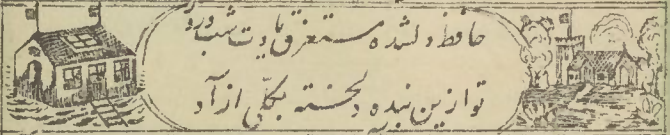 حافظ دلشده مستغرق یادت شب و روز
تو ازین بنده دلخسته بکلّی ازآد